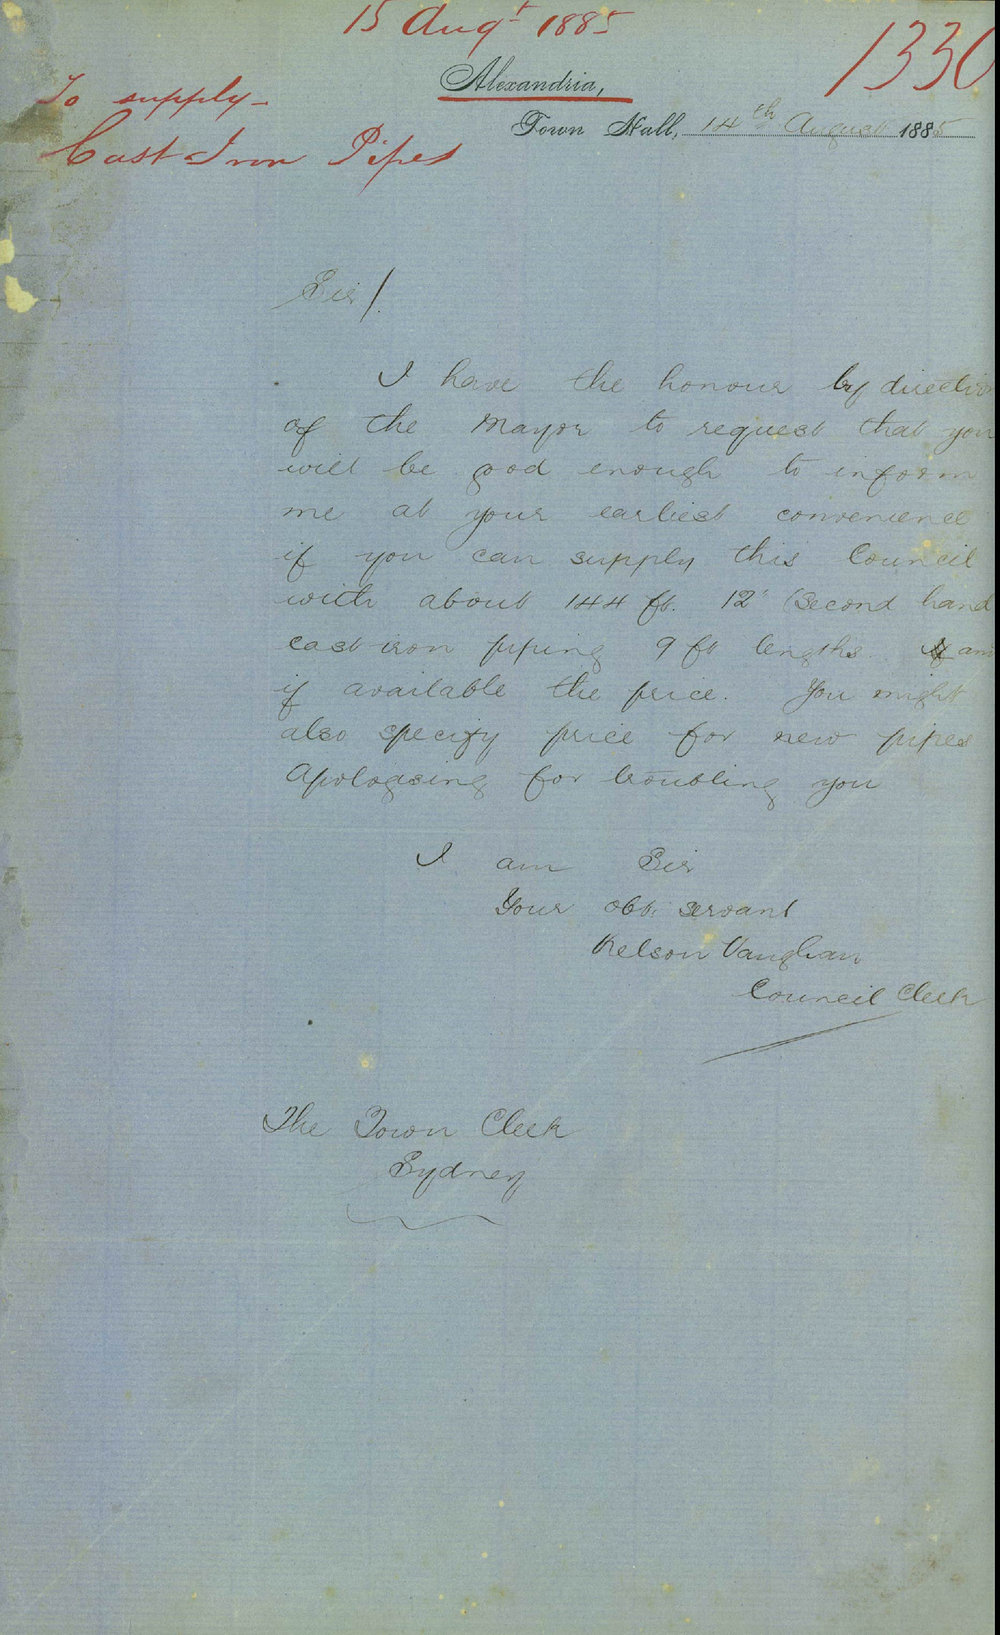 15 Augt 1885
1330
To supply -
Cast Iron Pipes
Alexandria,
Town Hall, 14th August 1885
Sir/.
I have the honour by directio
of the Mayor to request that you
will be good enough to inform
me at your earliest convenience
if you can supply this Council
with about 144 ft. 12" (second hand
cast iron piping 9 ft lengths. an
if available the price. You might
also specify price for new pipes
Apologising for troubling you
I am Sir
Your obt. servant
Nelson Vaughan
Council Clerk
The Town Clerk
Sydney